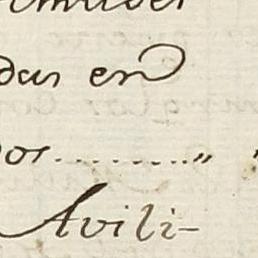 das en
os..........„ „
Avili-